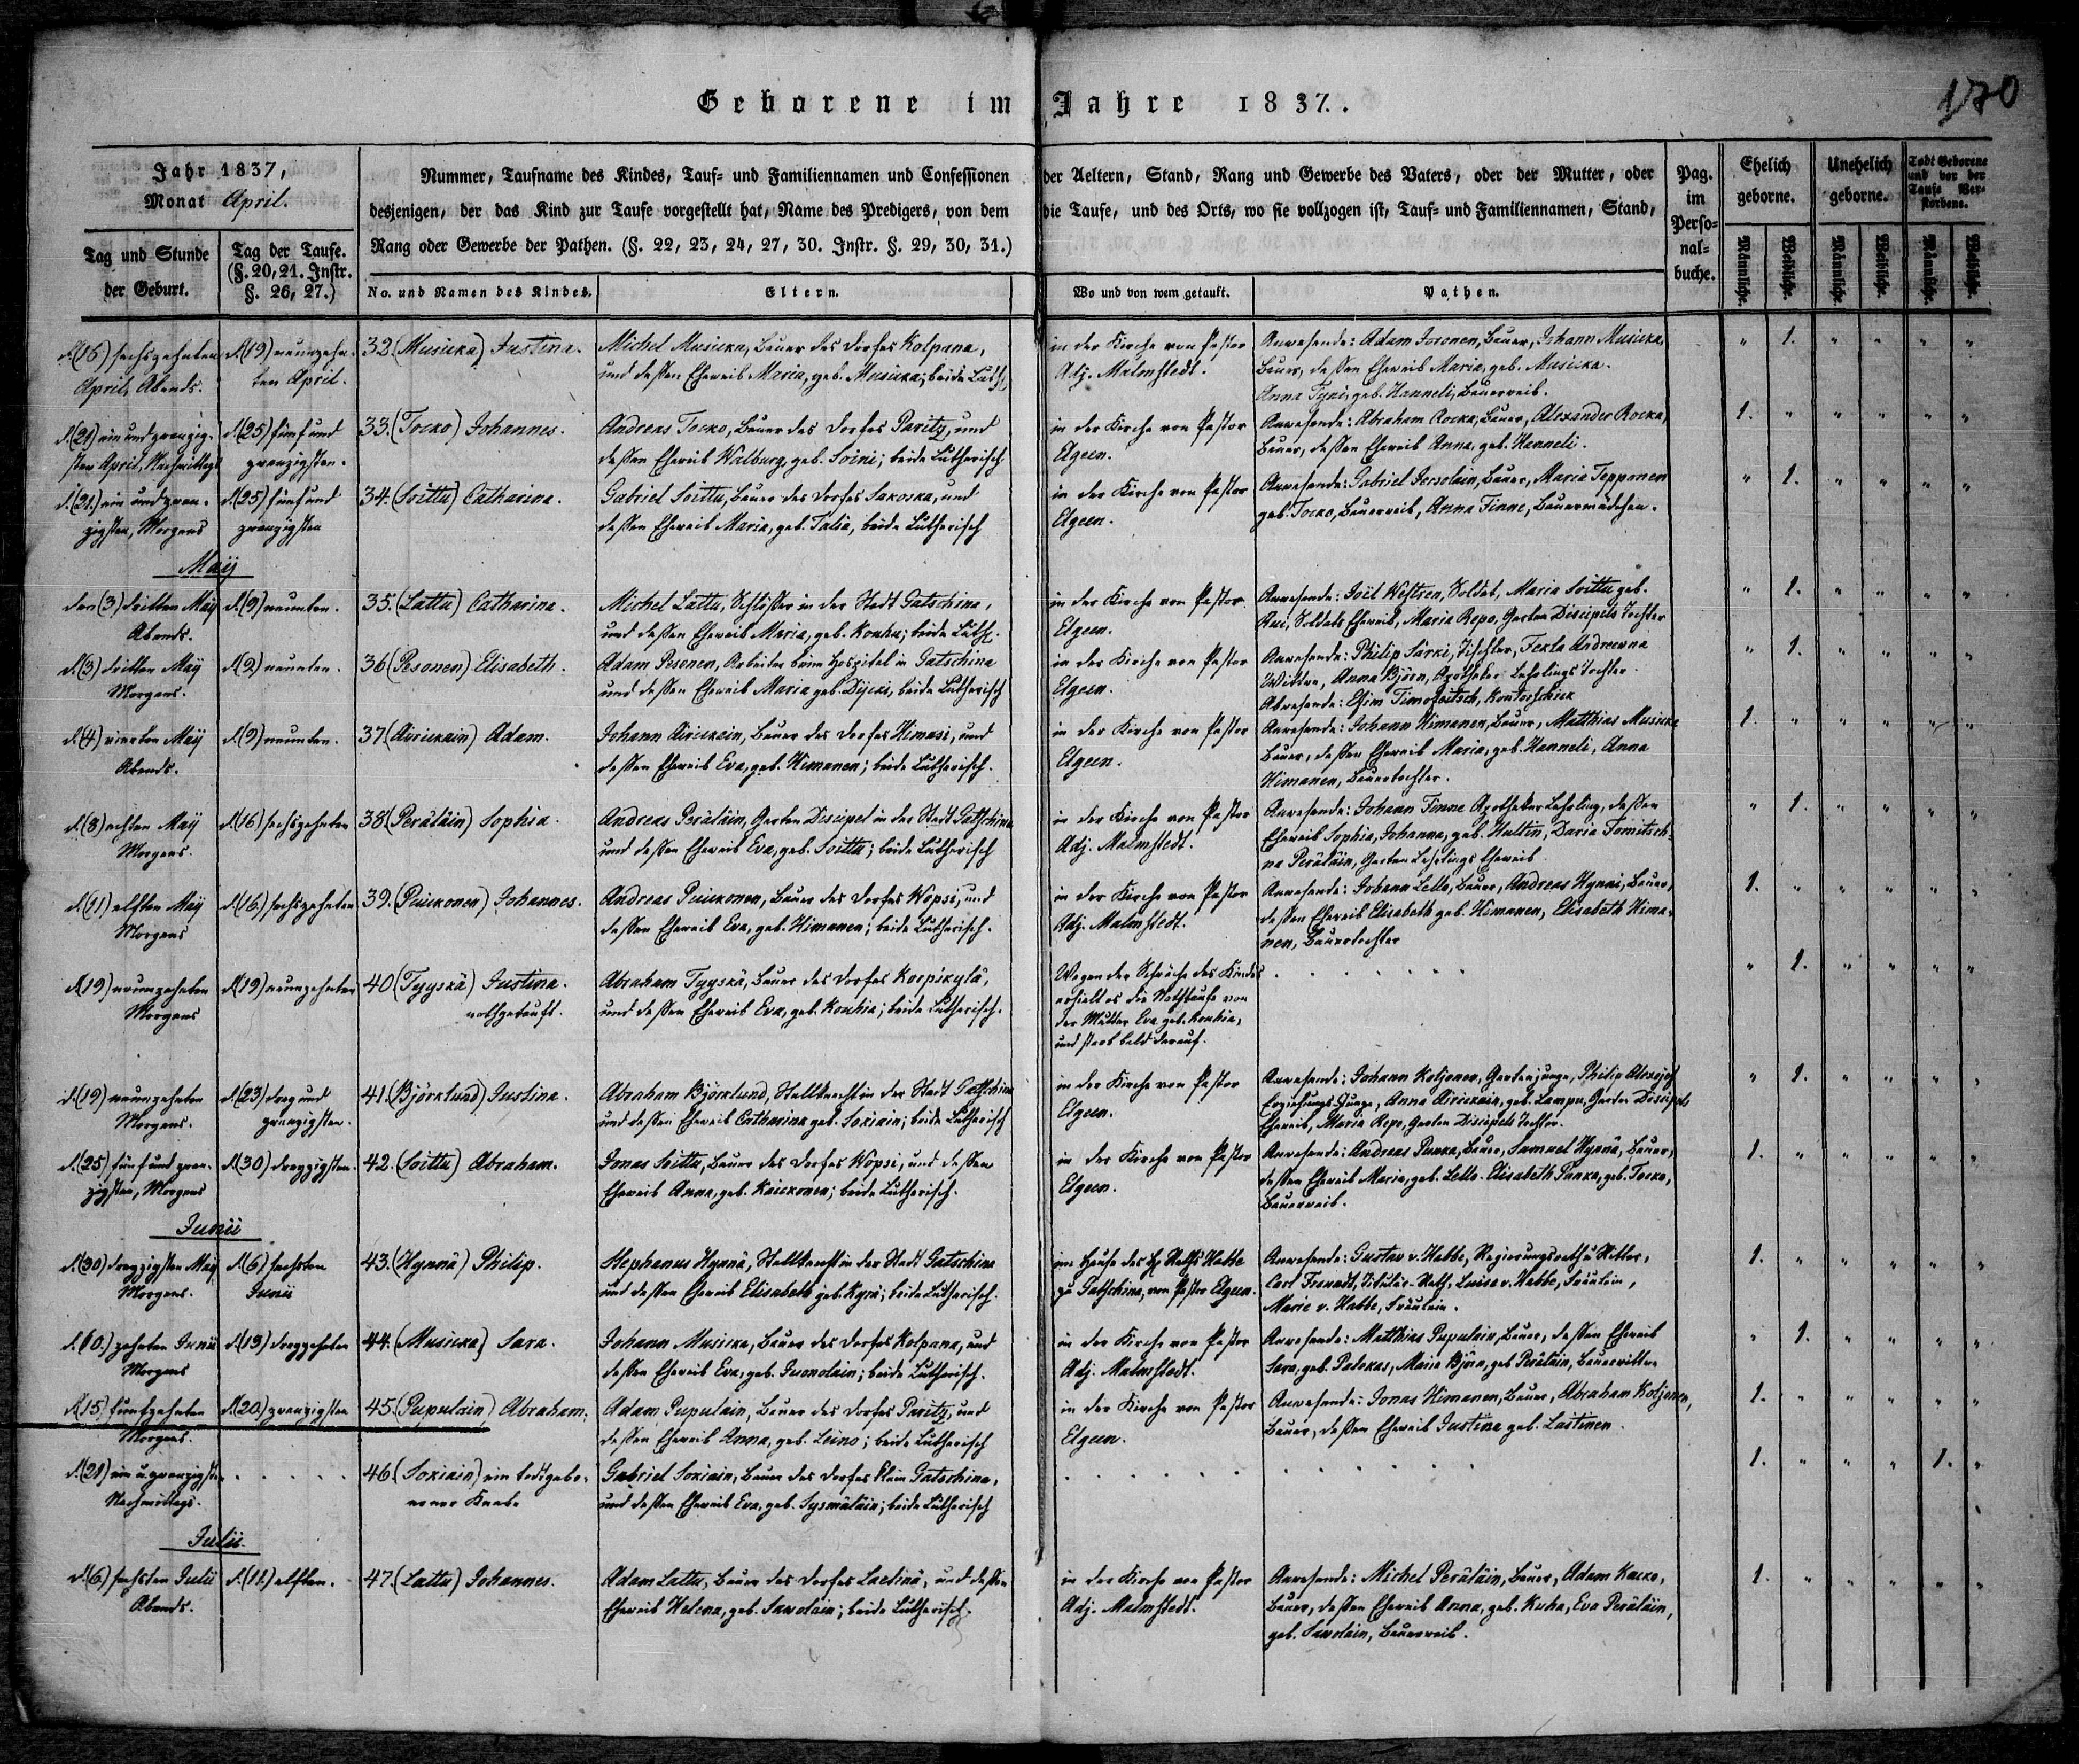 Geborene im Jahre 1837.
170
Jahr 1837,
Monat April.
Tag und Stunde
der Geburt.
Tag der Taufe.
(§. 20, 21. Instr.
§. 26, 27.)
Nummer, Taufname des Kindes, Tauf= und Familiennamen und Confessionen der Aeltern, Stand, Rang und Gewerbe des Vaters, oder der Mutter, oder
desjenigen, der das Kind zur Taufe vorgestellt hat, Name des Predigers, von dem die Taufe, und des Orts, wo sie vollzogen ist, Tauf= und Familiennamen, Stand,
Rang oder Gewerbe der Pathen. (§. 22, 23, 24, 27, 30. Instr. §. 29, 30, 31.)
No. und Namen des Kindes.
Eltern.
Wo und von wem getauft.
Pathen.
Pag.
im
Perso=
nal=
buche.
Ehelich
geborne.
Unehelich
geborne.
Todt Geborene
und vor der
Taufe Ver=
storbene.
Männliche.
Weibliche.
Männliche.
Weibliche.
Männliche.
Weibliche.
d. (16) sechszehnten
April, Abends.
d. (19) neunzehn-
ten April.
32. (Musicka) Justina.
Michel Musicka, Bauer des Dorfes Kolpana,
und dessen Eheweib Maria, geb. Musicka; beide Luth.
in der Kirche von Pastor
Adj. Malmstedt.
Anwesende: Adam Joronen, Bauer, Johann Musicka,
Bauer, dessen Eheweib Maria, geb. Musicka.
Anna Tyni, geb. Hanneli, Bauerweib.
" 1. " " " "
d. (21) ein und zwanzig-
sten April, Nachmittags
d. (25) fünf und
zwanzigsten.
33. (Tocko) Johannes.
Andreas Tocko, Bauer des Dorfes Paritz, und
dessen Eheweib Walburg, geb. Soini; beide Lutherisch
in der Kirche von Pastor
Elgeen.
Anwesende: Abraham Rocka, Bauer, Alexander Rocka,
Bauer, dessen Eheweib Anna, geb. Hanneli.
1. " " " " "
d. (21.) ein und zwan-
zigsten, Morgens
d. (25) fünf und
zwanzigsten
34. (Soittu) Catharina.
Gabriel Soittu, Bauer des Dorfes Sakoska, und
dessen Eheweib Maria, geb. Talia, beide Lutherisch
in der Kirche von Pastor
Elgeen.
Anwesende: Gabriel Jersolain, Bauer, Maria Tepponen
geb. Tocko, Bauerweib, Anna Finne, Bauermädchen.
" 1. " " " "
Maij
den (3) dritten Maij
Abends.
d. (9) neunten.
35. (Lattu) Catharina.
Michel Lattu, Schlösser in der Stadt Gatschina,
und dessen Eheweib Maria, geb. Kouhu; beide Luth.
in der Kirche von Pastor
Elgeen.
Anwesende: Joel Westren, Soldat, Maria Soittu geb.
Rui, Soldats Eheweib, Maria Repo, Garten Discipels Tochter
" 1. " " " "
d. (3) dritten Maij
Morgens.
d. (9) neunten.
36. (Pesonen) Elisabeth.
Adam Pesonen, Arbeiter beim Hospital in Gatschina
und dessen Eheweib Maria geb. Dijcki, beide Lutherisch
in der Kirche von Pastor
Elgeen.
Anwesende: Philip Särki, Tischler, Fekla Andreewna
Wittwe, Anna Björn, Apotheker Lehrlings Tochter.
Abwesende: Efim Timofeitsch, Kontorschick
" 1. " " " "
d. (4) vierten Maij
Abends.
d. (9) neunten.
37. (Airickain) Adam.
Johann Airickain, Bauer des Dorfes Himasi, und
dessen Eheweib Eva, geb. Himanen; beide Lutherisch.
in der Kirche von Pastor
Elgeen.
Anwesende: Johann Himanen, Bauer, Matthias Musicka
Bauer, dessen Eheweib Maria, geb. Hanneli, Anna
Himanen, Bauertochter.
1. " " " " "
d. (8) achten Maij
Morgens.
d. (16) sechszehnten
38. (Peräläin) Sophia.
Andreas Peräläin, Garten Discipel in der Stadt Gatschina
und dessen Eheweib Eva, geb. Soittu; beide Lutherisch
in der Kirche von Pastor
Adj. Malmstedt.
Anwesende: Johann Finne Apotheker Lehrling, dessen
Eheweib Sophia, Johanna, geb. Hultin, Daria Fomitsch-
na Peräläin, Garten Lehrlings Eheweib
" 1. " " " "
d. (11) elften Maij
Morgens
d. (16.) sechszehnten
39. (Puickonen) Johannes.
Andreas Puickonen, Bauer des Dorfes Wopsi, und
dessen Eheweib Eva, geb. Himanen; beide Lutherisch.
in der Kirche von Pastor
Adj. Malmstedt.
Anwesende: Johann Lello, Bauer, Andreas Hynni, Bauer,
dessen Eheweib Elisabeth geb. Himanen, Elisabeth Hima-
nen, Bauertochter
1. " " " " "
d. (19) neunzehnten
Morgens
d. (19) neunzehnten
40. (Tyyskä) Justina.
nothgetauft.
Abraham Tyyskä, Bauer des Dorfes Korpikylä,
und dessen Eheweib Eva, geb. Koukia; beide Lutherisch.
Wegen der Schwäche des Kindes
erhielt es die Nothtaufe von
der Mutter Eva geb. Koukia,
und starb bald darauf.
" 1. " " " "
d. (19) neunzehnten
Morgens.
d. (23) drey und
zwanzigsten.
41. (Björklund) Justina.
Abraham Björklund, Stallknecht in der Stadt Gatschina
und dessen Eheweib Catharina geb. Sokiain; beide Lutherisch
in der Kirche von Pastor
Elgeen.
Anwesende: Johann Koljonen, Gartenjunge, Philip Alexejef
Erziehungs-Junge, Anna Airickain, geb. Lampu, Garten Discipels
Eheweib, Maria Repo, Garten Discipels Tochter.
" 1. " " " "
d. (25) fünf und zwan-
zigsten, Morgens
d. (30) dreyzigsten.
42. (Soittu) Abraham.
Jonas Soittu, Bauer des Dorfes Wopsi, und dessen
Eheweib Anna, geb. Kaickonen; beide Lutherisch.
in der Kirche von Pastor
Elgeen.
Anwesende: Andreas Punka, Bauer, Samuel Hynnä, Bauer,
dessen Eheweib Maria, geb. Lello. Elisabeth Punka, geb. Tocko,
Bauerweib.
1. " " " " "
Junii
d. (30) dreyzigsten Maij
Morgens.
d. (6) sechsten
Junii
43. (Hynnä) Philip.
Stephanus Hynnä, Stallknecht in der Stadt Gatschina
und dessen Eheweib Elisabeth geb. Kyrä; beide Lutherisch.
im Hause des H. Raths Habbe
zu Gatschina, von Pastor Elgeen.
Anwesende: Gustav v. Habbe, Regierungsrath u Ritter,
Carl Freundt, Titulär-Rath, Luise v. Habbe, Fräulein,
Marie v. Habbe, Fräulein.
1. " " " " "
d. (10.) zehnten Junii
Morgens
d. (13) dreyzehnten
44. (Musicka) Sara.
Johann Musicka, Bauer des Dorfes Kolpana, und
dessen Eheweib Eva, geb. Suonolain; beide Lutherisch.
in der Kirche von Pastor
Adj. Malmstedt.
Anwesende: Matthias Pupulain, Bauer, dessen Eheweib
Sara, geb. Palokas, Maria Björn, geb Peräläin, Bauerwittwe
" 1. " " " "
d. (15) fünfzehnten
Morgens.
d. (20) zwanzigsten
45. (Pupulain) Abraham.
Adam Pupulain, Bauer des Dorfes Paritz, und
dessen Eheweib Anna, geb. Leino; beide Lutherisch
in der Kirche von Pastor
Elgeen.
Anwesende: Jonas Himanen, Bauer, Abraham Koljonen,
Bauer, dessen Eheweib Justina geb. Lastinen.
1. " " " " "
d. (21) ein u. zwanzigsten
Nachmittags.
46. (Sokiain) ein todtgebo-
rener Knabe
Gabriel Sokiain, Bauer des Dorfes Klein Gatschina,
und dessen Eheweib Eva, geb. Sysmäläin; beide Lutherisch
1. " " " 1. "
Julii.
d. (6) sechsten Julii
Abends.
d. (11) elften.
47. (Lattu) Johannes.
Adam Lattu, Bauer des Dorfes Laelinä, und dessen
Eheweib Helena, geb. Sawolain; beide Lutherisch.
in der Kirche von Pastor
Adj. Malmstedt.
Anwesende: Michel Peräläin, Bauer, Adam Kacko,
Bauer, dessen Eheweib Anna, geb. Kuha, Eva Peräläin,
geb. Sawolain, Bauerweib.
1. " " " " "